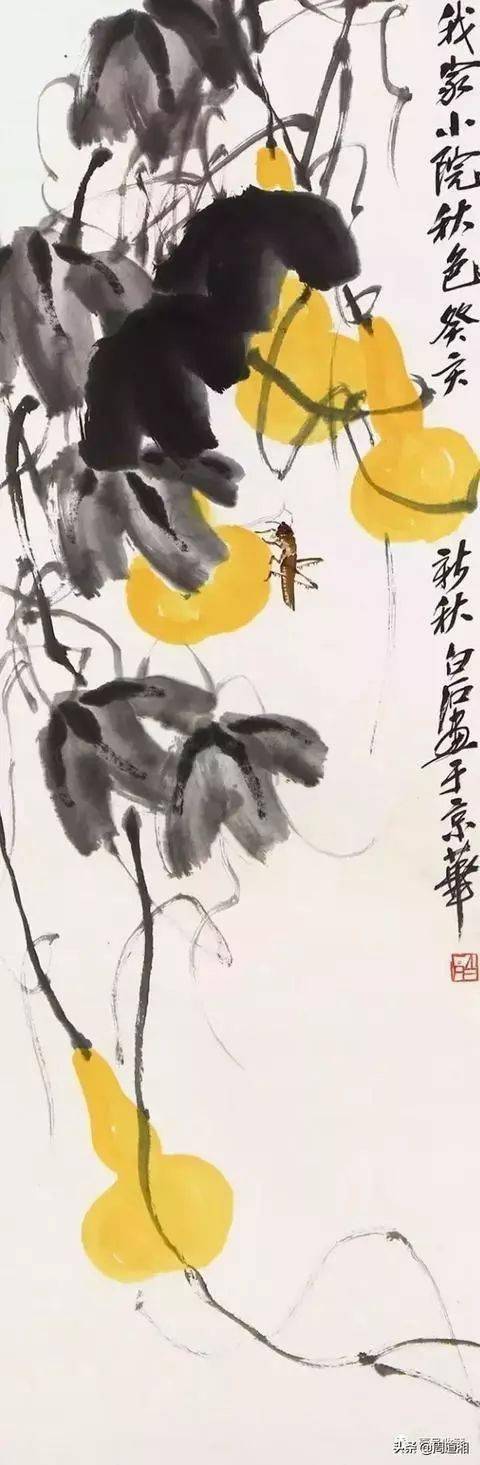 我家小院秋色癸亥
新秋白石画于京华
头条@周道湘